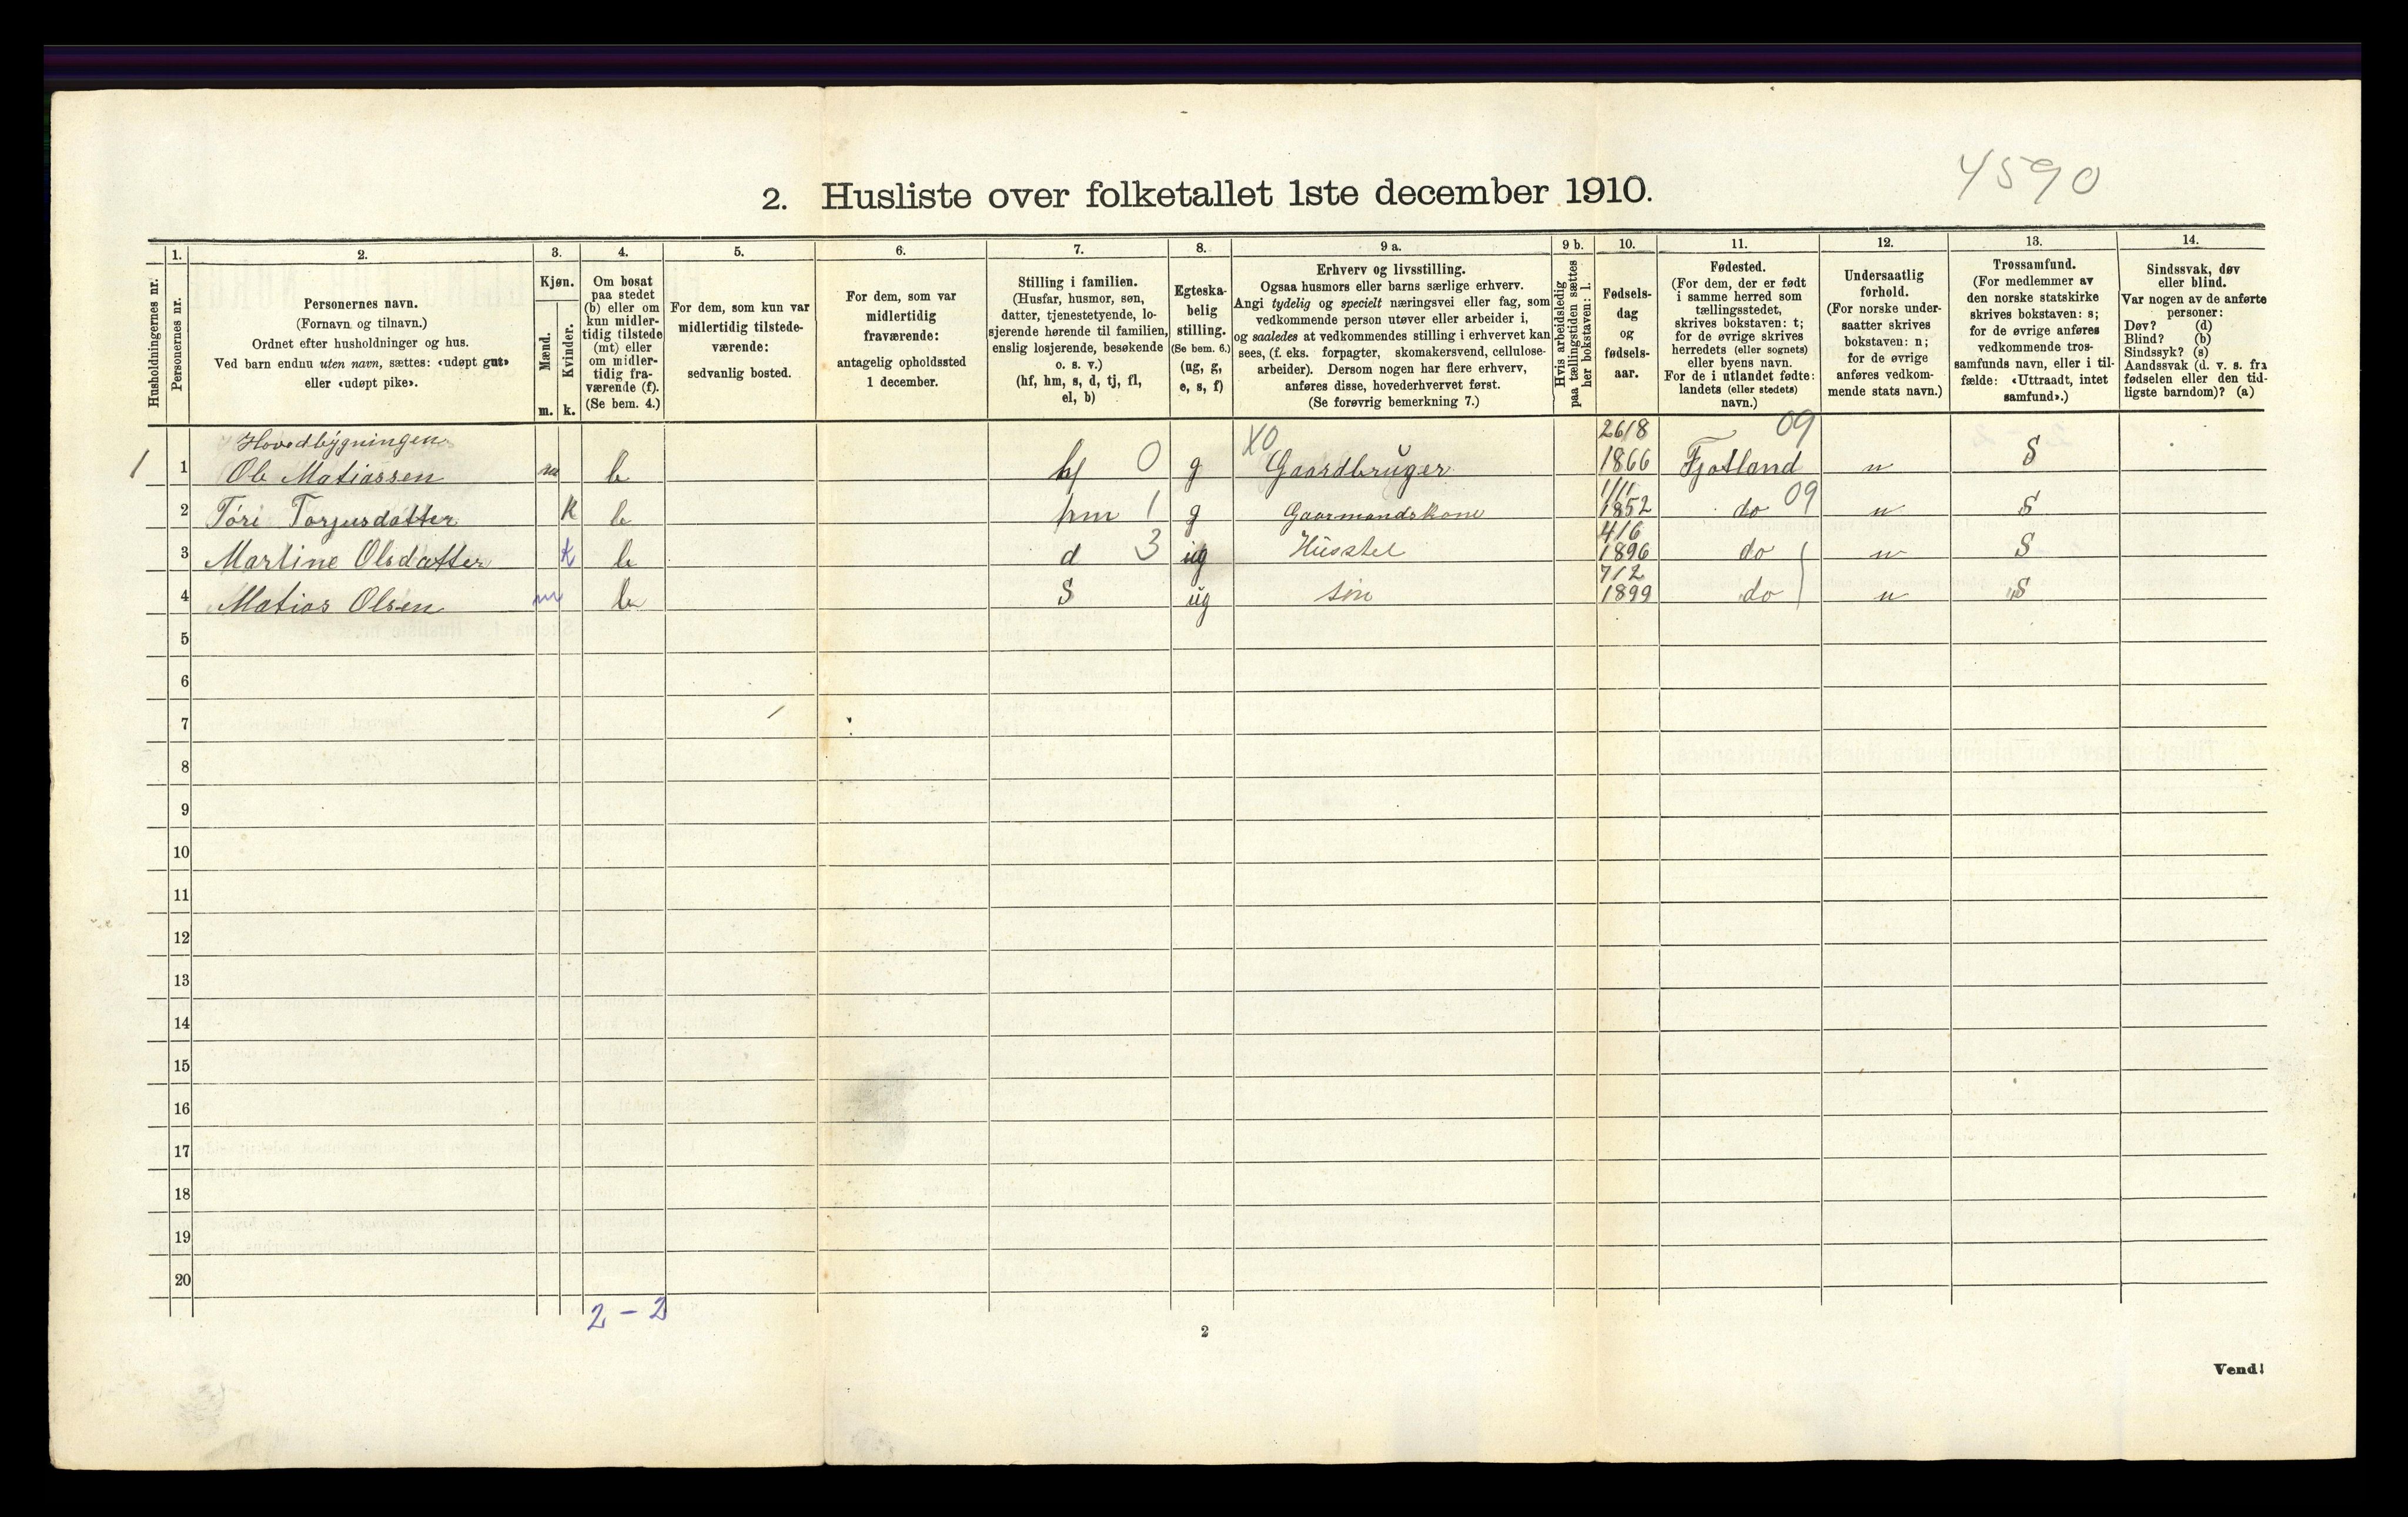 4590
2. Husliste over folketallet 1ste december 1910.
Husholdningernes nr.
1.
Personernes nr.
2.
Personernes navn.
(Fornavn og tilnavn.)
Ordnet efter husholdninger og hus.
Ved barn endnu uten navn, sættes: «udøpt gut»
eller «udøpt pike».
3.
Kjøn.
Mænd.
Kvinder.
m. k.
4.
Om bosat
paa stedet
(b) eller om
kun midler-
tidig tilstede
(mt) eller
om midler-
tidig fra-
værende (f).
(Se bem. 4.)
5.
For dem, som kun var
midlertidig tilstede-
værende:
sedvanlig bosted.
6.
For dem, som var
midlertidig
fraværende:
antagelig opholdssted
1 december.
7.
Stilling i familien.
(Husfar, husmor, søn,
datter, tjenestetyende, lo-
sjerende hørende til familien,
enslig losjerende, besøkende
o. s. v.)
(hf, hm, s, d, tj, fl,
el, b)
8.
Egteska-
belig
stilling.
(Se bem. 6.)
(ug, g,
e, s, f)
9 a.
Erhverv og livsstilling.
Ogsaa husmors eller barns særlige erhverv.
Angi tydelig og specielt næringsvei eller fag, som
vedkommende person utøver eller arbeider i,
og saaledes at vedkommendes stilling i erhvervet kan
sees, (f. eks. forpagter, skomakersvend, cellulose-
arbeider). Dersom nogen har flere erhverv,
anføres disse, hovederhvervet først.
(Se forøvrig bemerkning 7.)
9 b.
Hvis arbeidsledig
paa tællingstiden sættes
her bokstaven: l.
10.
Fødsels-
dag
og
fødsels-
aar.
11.
Fødested.
(For dem, der er født
i samme herred som
tællingsstedet,
skrives bokstaven: t;
for de øvrige skrives
herredets (eller sognets)
eller byens navn.
For de i utlandet fødte:
landets (eller stedets)
navn.)
12.
Undersaatlig
forhold.
(For norske under-
saatter skrives
bokstaven: n;
for de øvrige
anføres vedkom-
mende stats navn.)
13.
Trossamfund.
(For medlemmer av
den norske statskirke
skrives bokstaven: s;
for de øvrige anføres
vedkommende tros-
samfunds navn, eller i til-
fælde: «Uttraadt, intet
samfund».)
14.
Sindssvak, døv
eller blind.
Var nogen av de anførte
personer:
Døv? (d)
Blind? (b)
Sindssyk? (s)
Aandssvak (d. v. s. fra
fødselen eller den tid-
ligste barndom)? (a)
Hovedbygningen X0 26/8 09
1 1 Ole Matiassen m b hf 0 g Gaardbruger 1866 Fjotland n S
1/11 09
2 Tóri Torjusdatter k b hm 1 g Gaarmandskone 1852 do n S
4/6
3 Martine Olsdatter k b d 3 ug Husstel 1896 do n S
7/2
4 Matias Olsen m b S ug sön 1899 do n S
5
6
7
8
9
10
11
12
13
14
15
16
17
18
19
20
2 - 2
2
Vend!